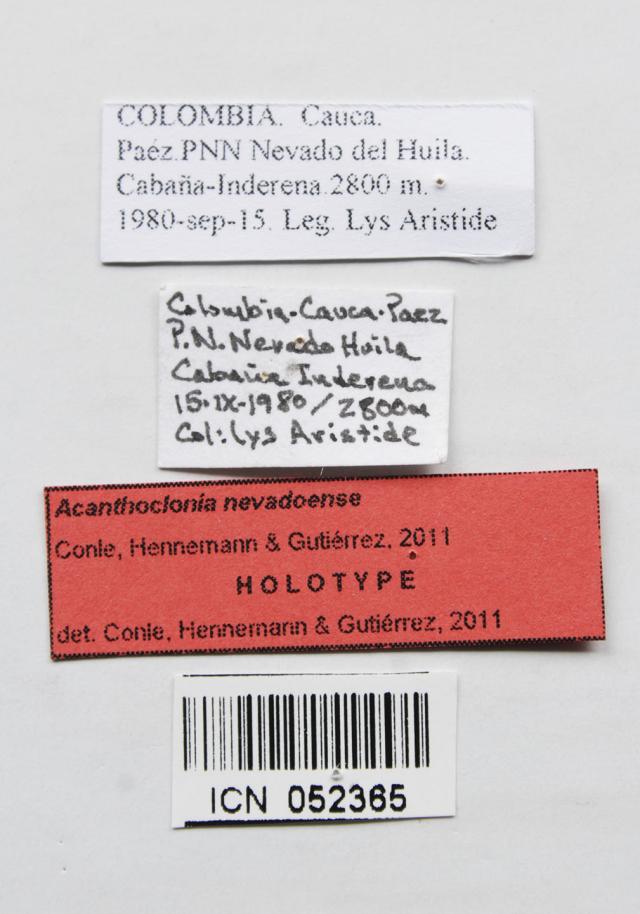 COLOMBIA. Cauca.
Paéz.PNN Nevado del Huila.
Cabaña-Inderena.2800 m.
1980-sep-15. Leg. Lys Aristide
Colombia.Cauca.Paez
P.N.Nevado Huila
Cabaña Inderena
15.IX-1980/2800m
Col:Lys Aristide
Acanthoclonia nevadoense
Conle, Hennemann & Gutiérrez, 2011
HOLOTYPE
det. Conle, Hennemann & Gutiérrez, 2011
ICN 052365